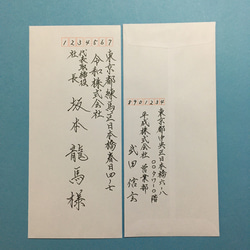 1234567
東京都練馬区日本橋春日四ノ七
令和株式会社
代表取締役
社長 坂本龍馬様
東京都中央区日本橋六ノ八
平成株式会社 営業部
武田信玄
8901234